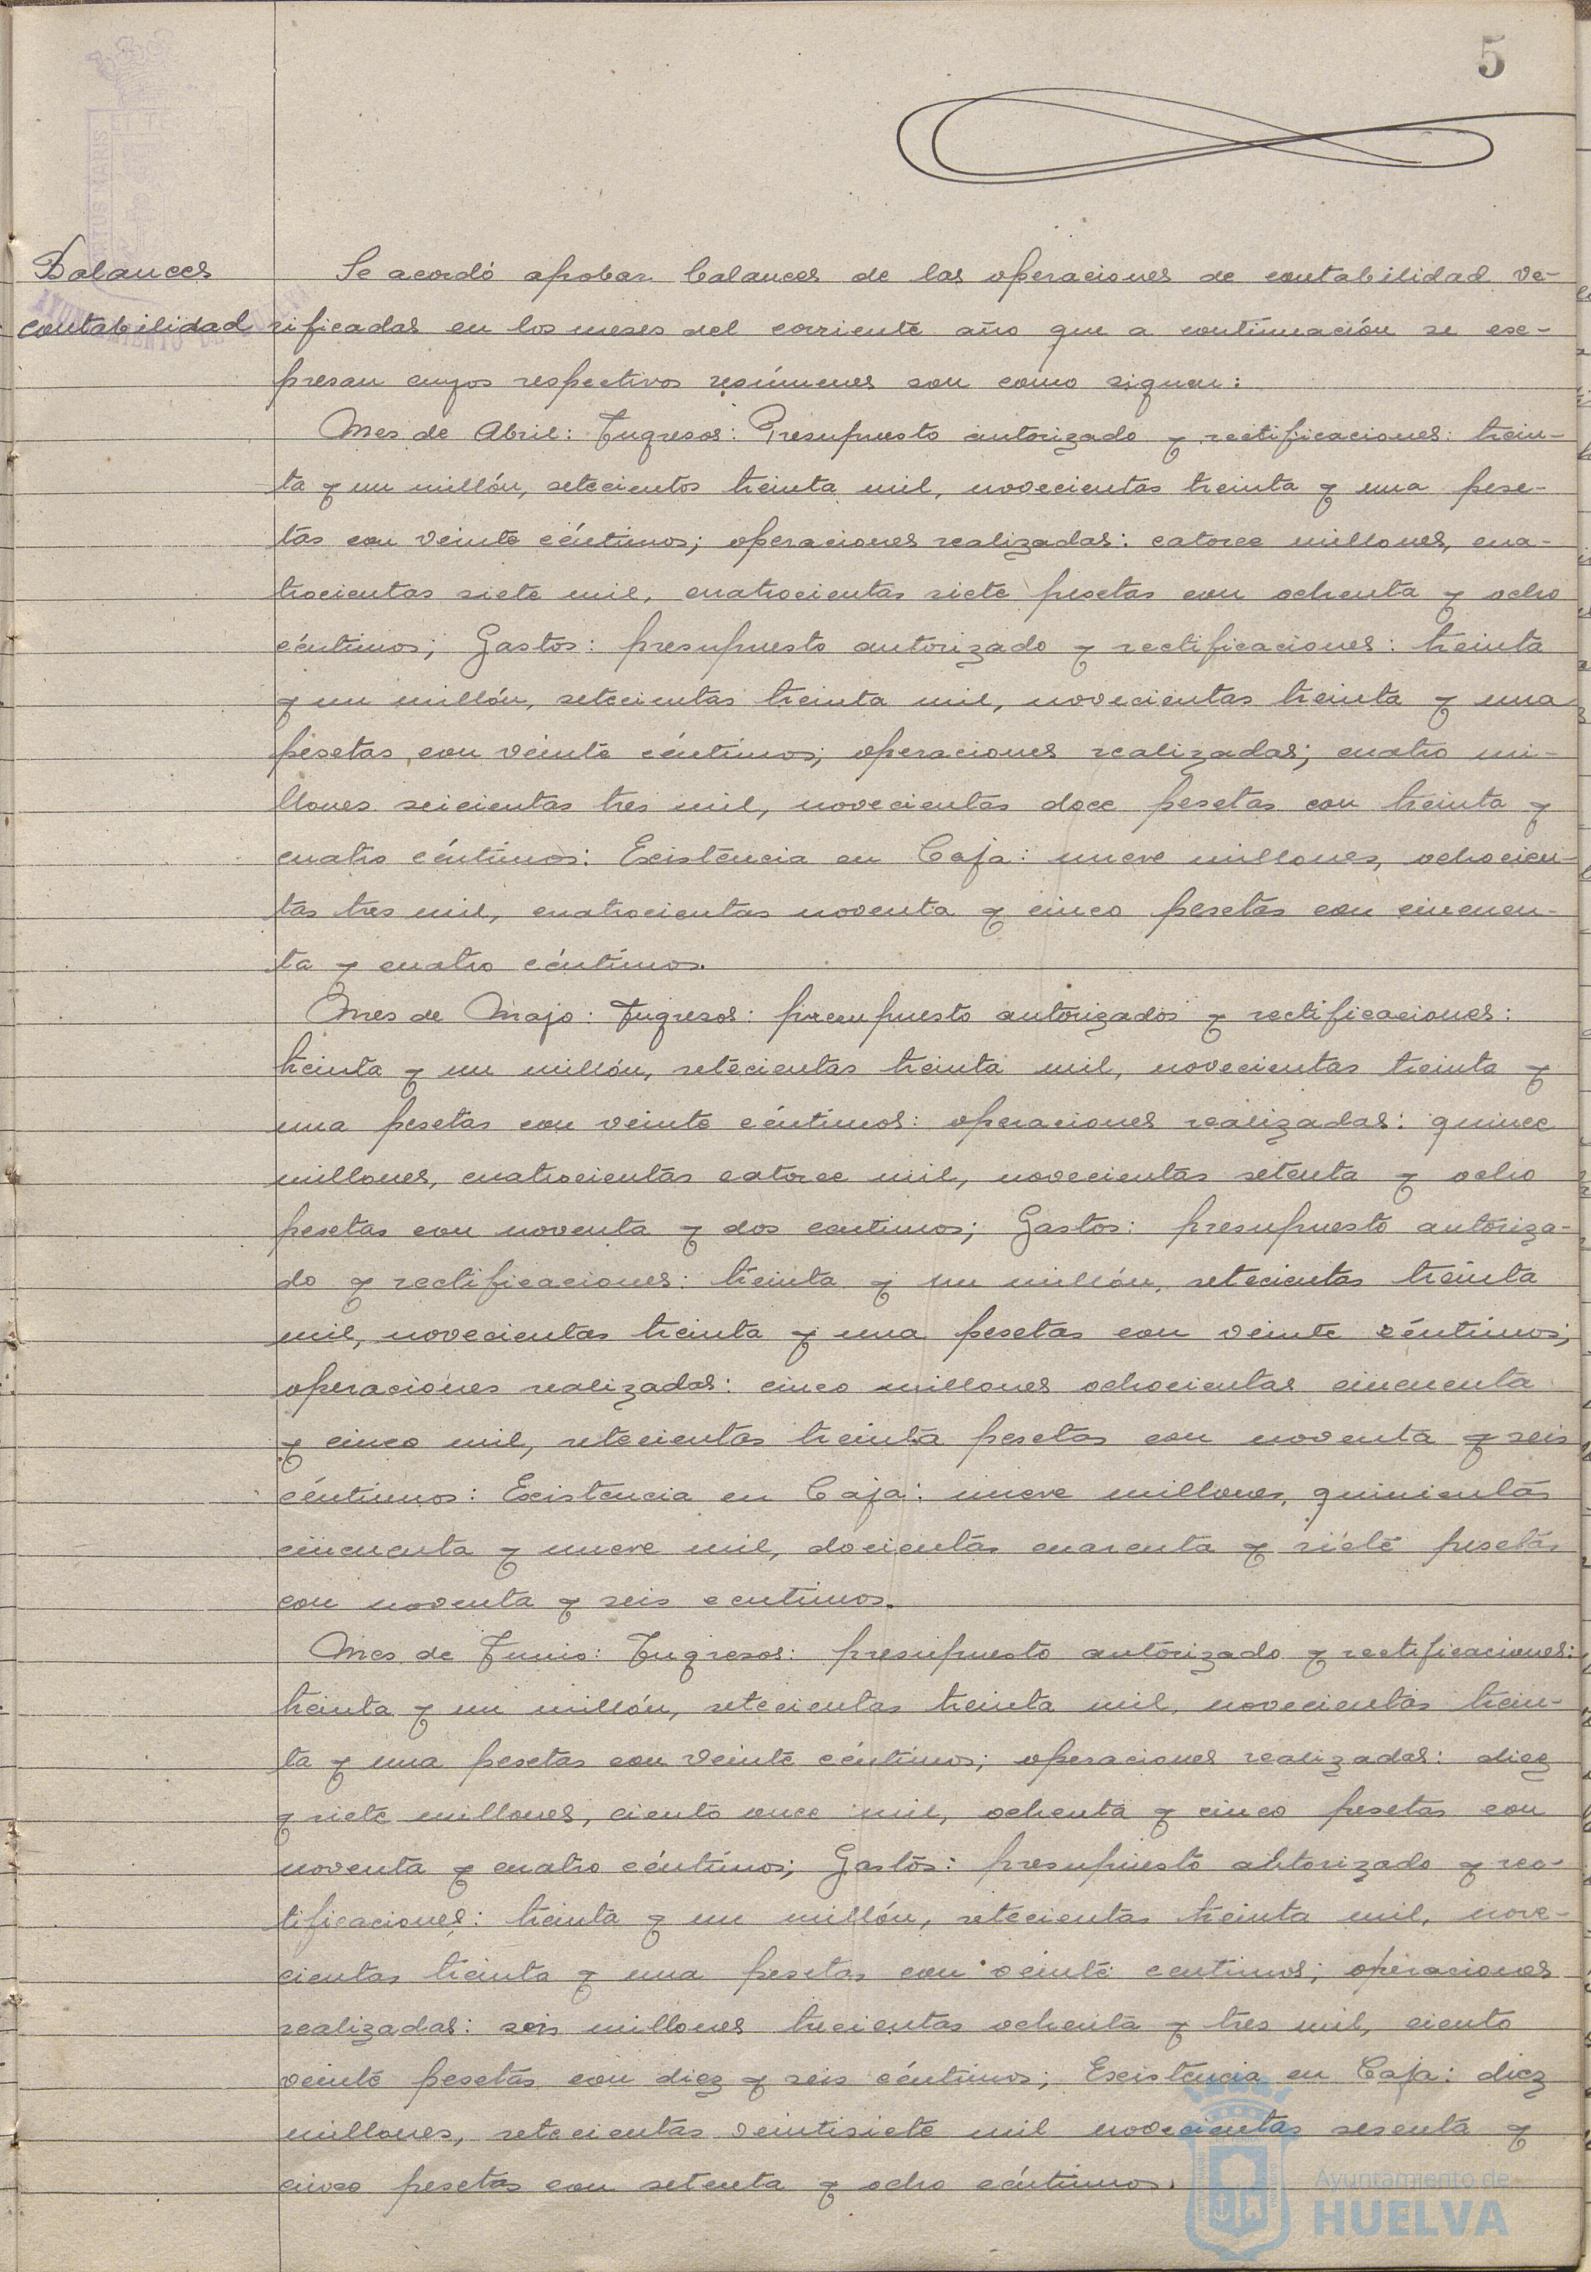 5
Balances
contabilidad
Se acordó aprobar balances de las operaciones de contabilidad ve-
rificadas en los meses del corriente año que a continuación se ex-
presan cuyos respectivos resúmenes son como siguen:
Mes de Abril: Ingresos: Presupuesto autorizado y rectificaciones: trein-
ta y un millón, setecientos treinta mil, novecientas treinta y una pese-
tas con veinte céntimos; operaciones realizadas: catorce millones, cua-
trocientas siete mil, cuatrocientas siete pesetas con ochenta y ocho
céntimos; Gastos: presupuesto autorizado y rectificaciones: treinta
y un millón, setecientas treinta mil, novecientas treinta y una
pesetas con veinte céntimos; operaciones realizadas; cuatro mi-
llones seicientas tres mil, novecientas doce pesetas con treinta y
cuatro céntimos: Existencia en Caja: nueve millones, ochocien-
tas tres mil, cuatrocientas noventa y cinco pesetas con cincuen-
ta y cuatro céntimos.
Mes de Mayo: Ingresos: presupuesto autorizados y rectificaciones:
treinta y un millón, setecientas treinta mil, novecientas treinta y
una pesetas con veinte céntimos: operaciones realizadas: quince
millones, cuatrocientas catorce mil, novecientas setenta y ocho
pesetas con noventa y dos centimos; Gastos: presupuesto autoriza-
do y rectificaciones: treinta y un millón, setecientas treinta
mil, novecientas treinta y una pesetas con veinte céntimos;
operaciones realizadas: cinco millones ochocientas cincuenta
y cinco mil, setecientas treinta pesetas con noventa y seis
céntimos: Existencia en Caja: nueve millones, quinientas
cincuenta y nueve mil, docientas cuarenta y siete pesetas
con noventa y seis centimos.
Mes de Junio: Ingresos: presupuesto autorizado y rectificaciones:
treinta y un millón, setecientas treinta mil, novecientas trein-
ta y una pesetas con veinte céntimos; operaciones realizadas: diez
y siete millones, ciento once mil, ochenta y cinco pesetas con
noventa y cuatro céntimos; Gastos: presupuesto autorizado y rec-
tificaciones: treinta y un millón, setecientas treinta mil, nove-
cientas treinta y una pesetas con veinte centimos; operaciones
realizadas: seis millones trecientas ochenta y tres mil, ciento
veinte pesetas con diez y seis céntimos; Existencia en Caja: diez
millones, setecientas veintisiete mil novecientas sesenta y
cinco pesetas con setenta y ocho céntimos.
Ayuntamiento de
HUELVA